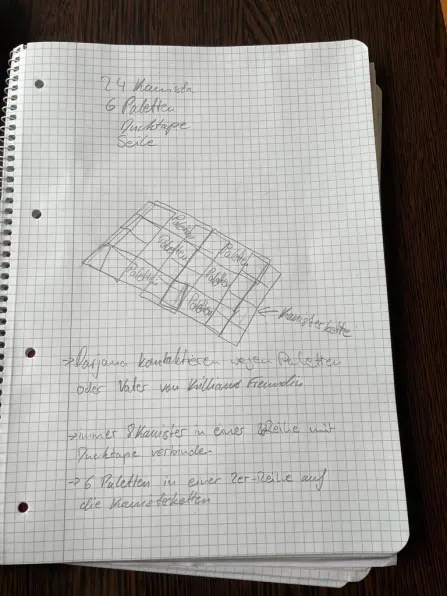 24 Kanister
6 Paletten
Ducktape
Seile
Paletten
Paletten
Paletten
Paletten
Paletten
Paletten
← Kanisterkette
→ Darjana kontaktieren wegen Paletten
oder Vater von Killians Freundin
→ immer 8 Kanister in einer Reihe mit
Ducktape verbinden
→ 6 Paletten in einer 2er-Reihe auf
die Kanisterketten